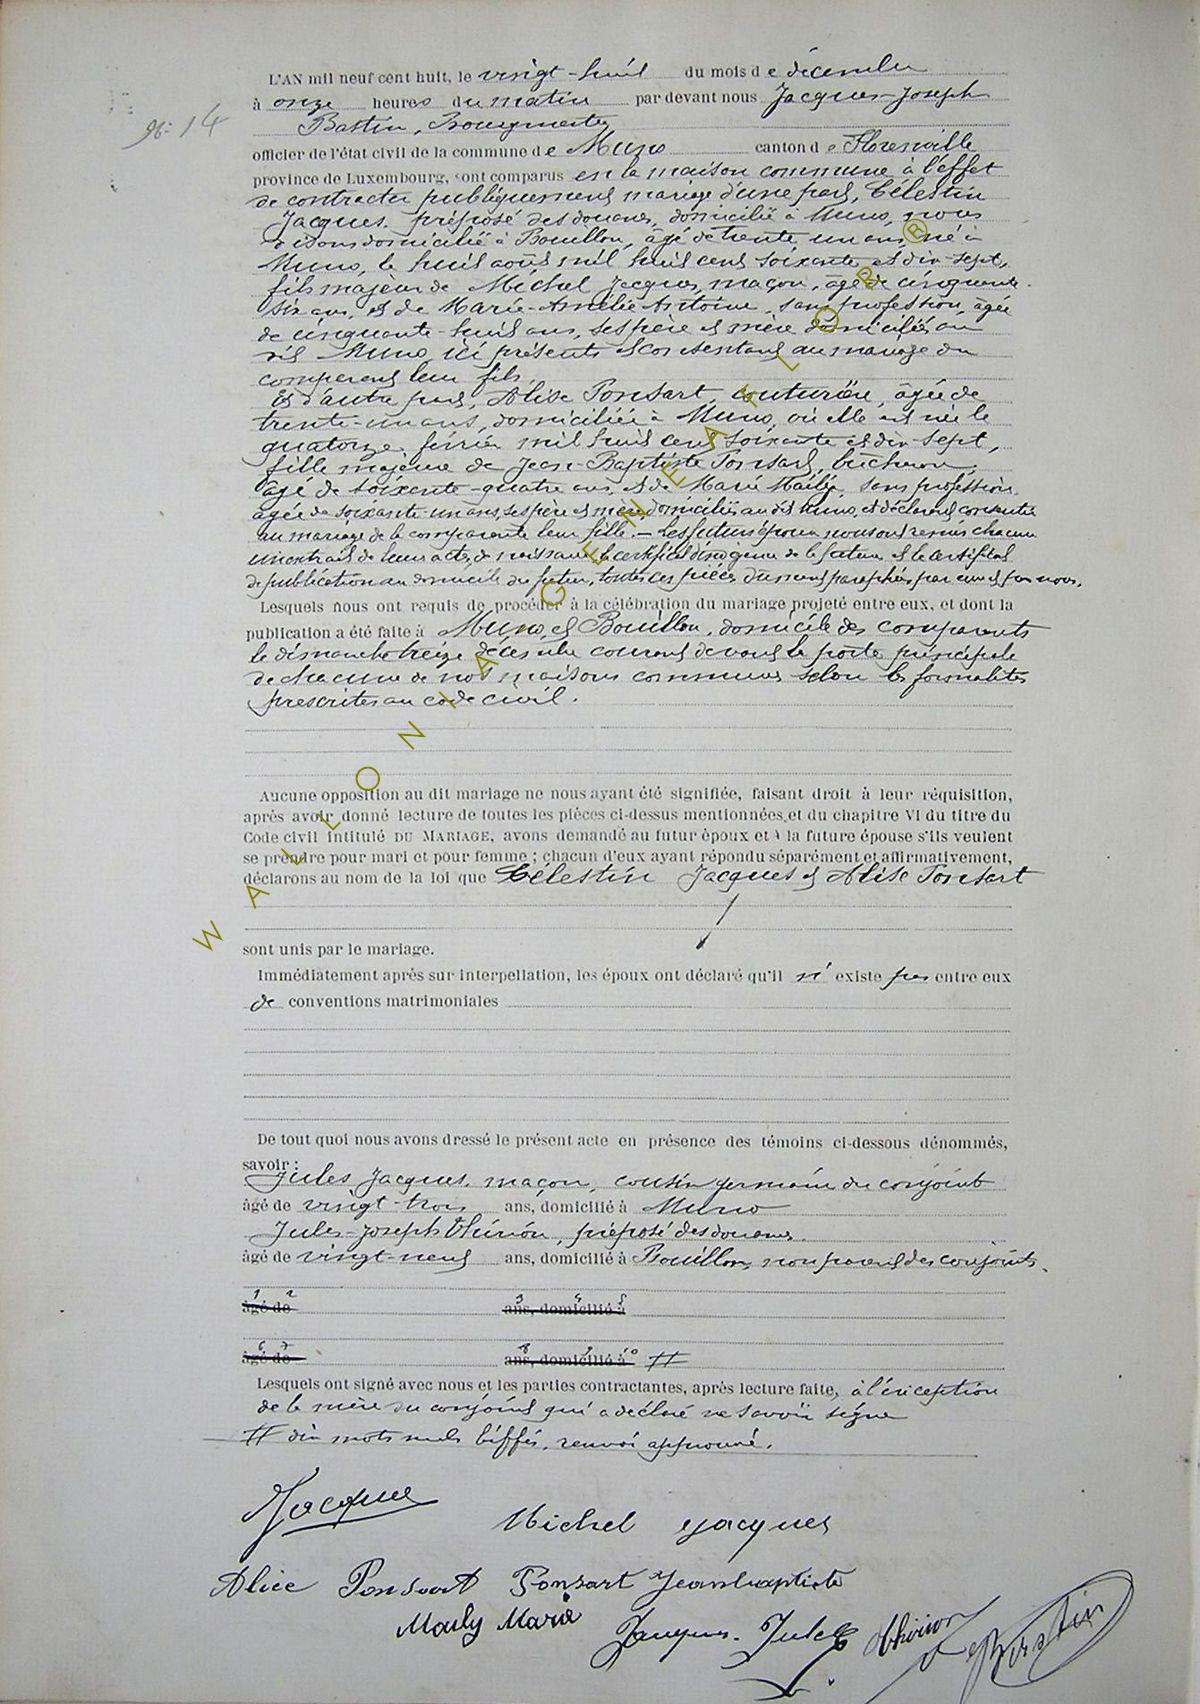 L'AN mil neuf cent huit, le vingt-huit du mois de décembre
N: 14
à onze heures du matin par devant nous Jacques-Joseph
Bastin, Bourgmestre
officier de l'état civil de la commune de Muno canton de Florenville
province de Luxembourg, sont comparus en la maison commune à l'effet
de contracter publiquement mariage d'une part, Célestin
Jacques, préposé des douanes, domicilié à Muno, nous
disons domicilié à Bouillon, âgé de trente un ans, né à
Muno, le huit août mil huit cent soixante et dix-sept,
fils majeur de Michel Jacques, maçon, âgé de cinquante
six ans, et de Marie-Amélie Antoine, sans profession, âgée
de cinquante-huit ans, ses père et mère domiciliés au
dit Muno, ici présents et consentant au mariage du
comparant leur fils.
Et d'autre part, Alise Ponsart, couturière, âgée de
trente-un ans, domiciliée à Muno, où elle est née le
quatorze février mil huit cent soixante et dix-sept,
fille majeure de Jean-Baptiste Ponsart, bûcheron,
âgé de soixante-quatre ans, et de Marie sans profession,
âgée de soixante un ans, ses père et mère, domiciliés au dit Muno, et déclarant consentir
au mariage de la comparante leur fille. — Les futurs époux nous ont remis chacun
un extrait de leurs actes de naissance, le certificat de la future et le certificat
de publication au domicile du futur, toutes ces pièces dûment paraphées par eux et par nous.
Lesquels nous ont requis de procéder à la célébration du mariage projeté entre eux, et dont la
publication a été faite à Muno, et Bouillon, domicile des comparants
le dimanche treize décembre courant devant la porte principale
de chacune de nos maisons communes selon les formalités
prescrites au code civil.
Aucune opposition au dit mariage ne nous ayant été signifiée, faisant droit à leur réquisition,
après avoir donné lecture de toutes les pièces ci-dessus mentionnées et du chapitre VI du titre du
Code civil intitulé DU MARIAGE, avons demandé au futur époux et à la future épouse s'ils veulent
se prendre pour mari et pour femme ; chacun d'eux ayant répondu séparément et affirmativement,
déclarons au nom de la loi que Célestin Jacques et Alise Ponsart
sont unis par le mariage.
Immédiatement après sur interpellation, les époux ont déclaré qu'il n'existe pas entre eux
de conventions matrimoniales
De tout quoi nous avons dressé le présent acte en présence des témoins ci-dessous dénommés,
savoir :
Jules Jacques, maçon, cousin germain du conjoint
âgé de vingt-trois ans, domicilié à Muno
Jules-Joseph Thirion, préposé des douanes
âgé de vingt-neuf ans, domicilié à Bouillon, non parent des conjoints.
1 2 3 4 5
âgé de ans, domicilié à
6 7 8 9 10
âgé de ans, domicilié à #
Lesquels ont signé avec nous et les parties contractantes, après lecture faite, à l'exception
de la mère du conjoint qui a déclaré ne savoir signer
# dix mots nuls biffés, renvoi approuvé.
Jacques
Michel Jacques
Alice Ponsart Ponsart Jeanbaptiste
Mouly Marie Jacques Jules Thirion Bastin
WALLONIA GENEAFLOR ®